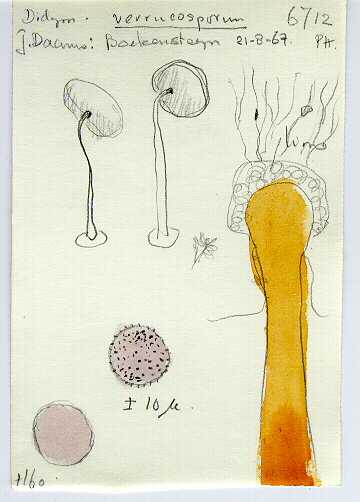 Didym. verrucosporum 6712
J. Daams: Boekensteyn 21-8-67. PH.
± 10 µ.
±160